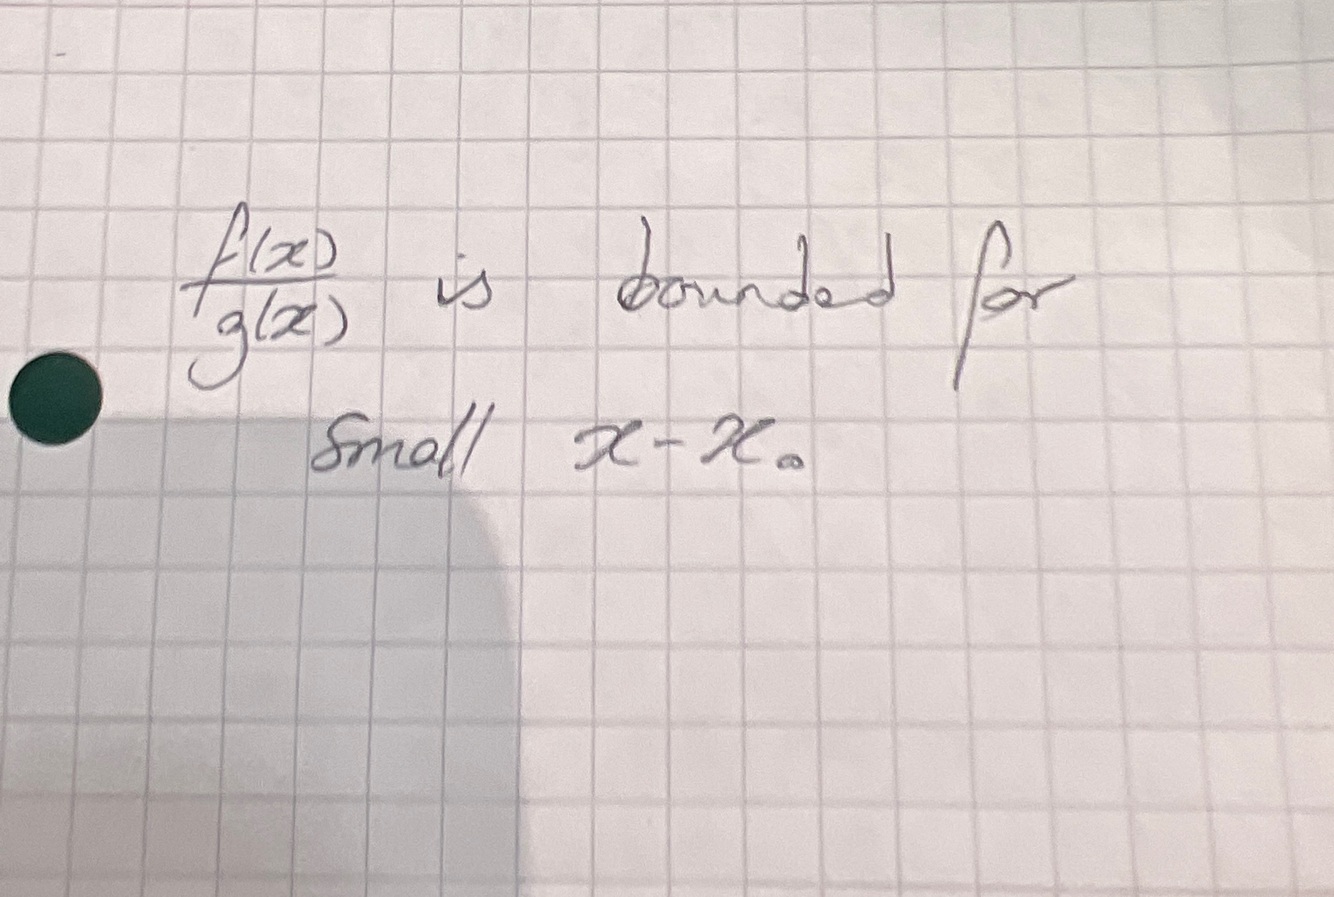 f(x)/g(x) is bounded for
small x-x₀